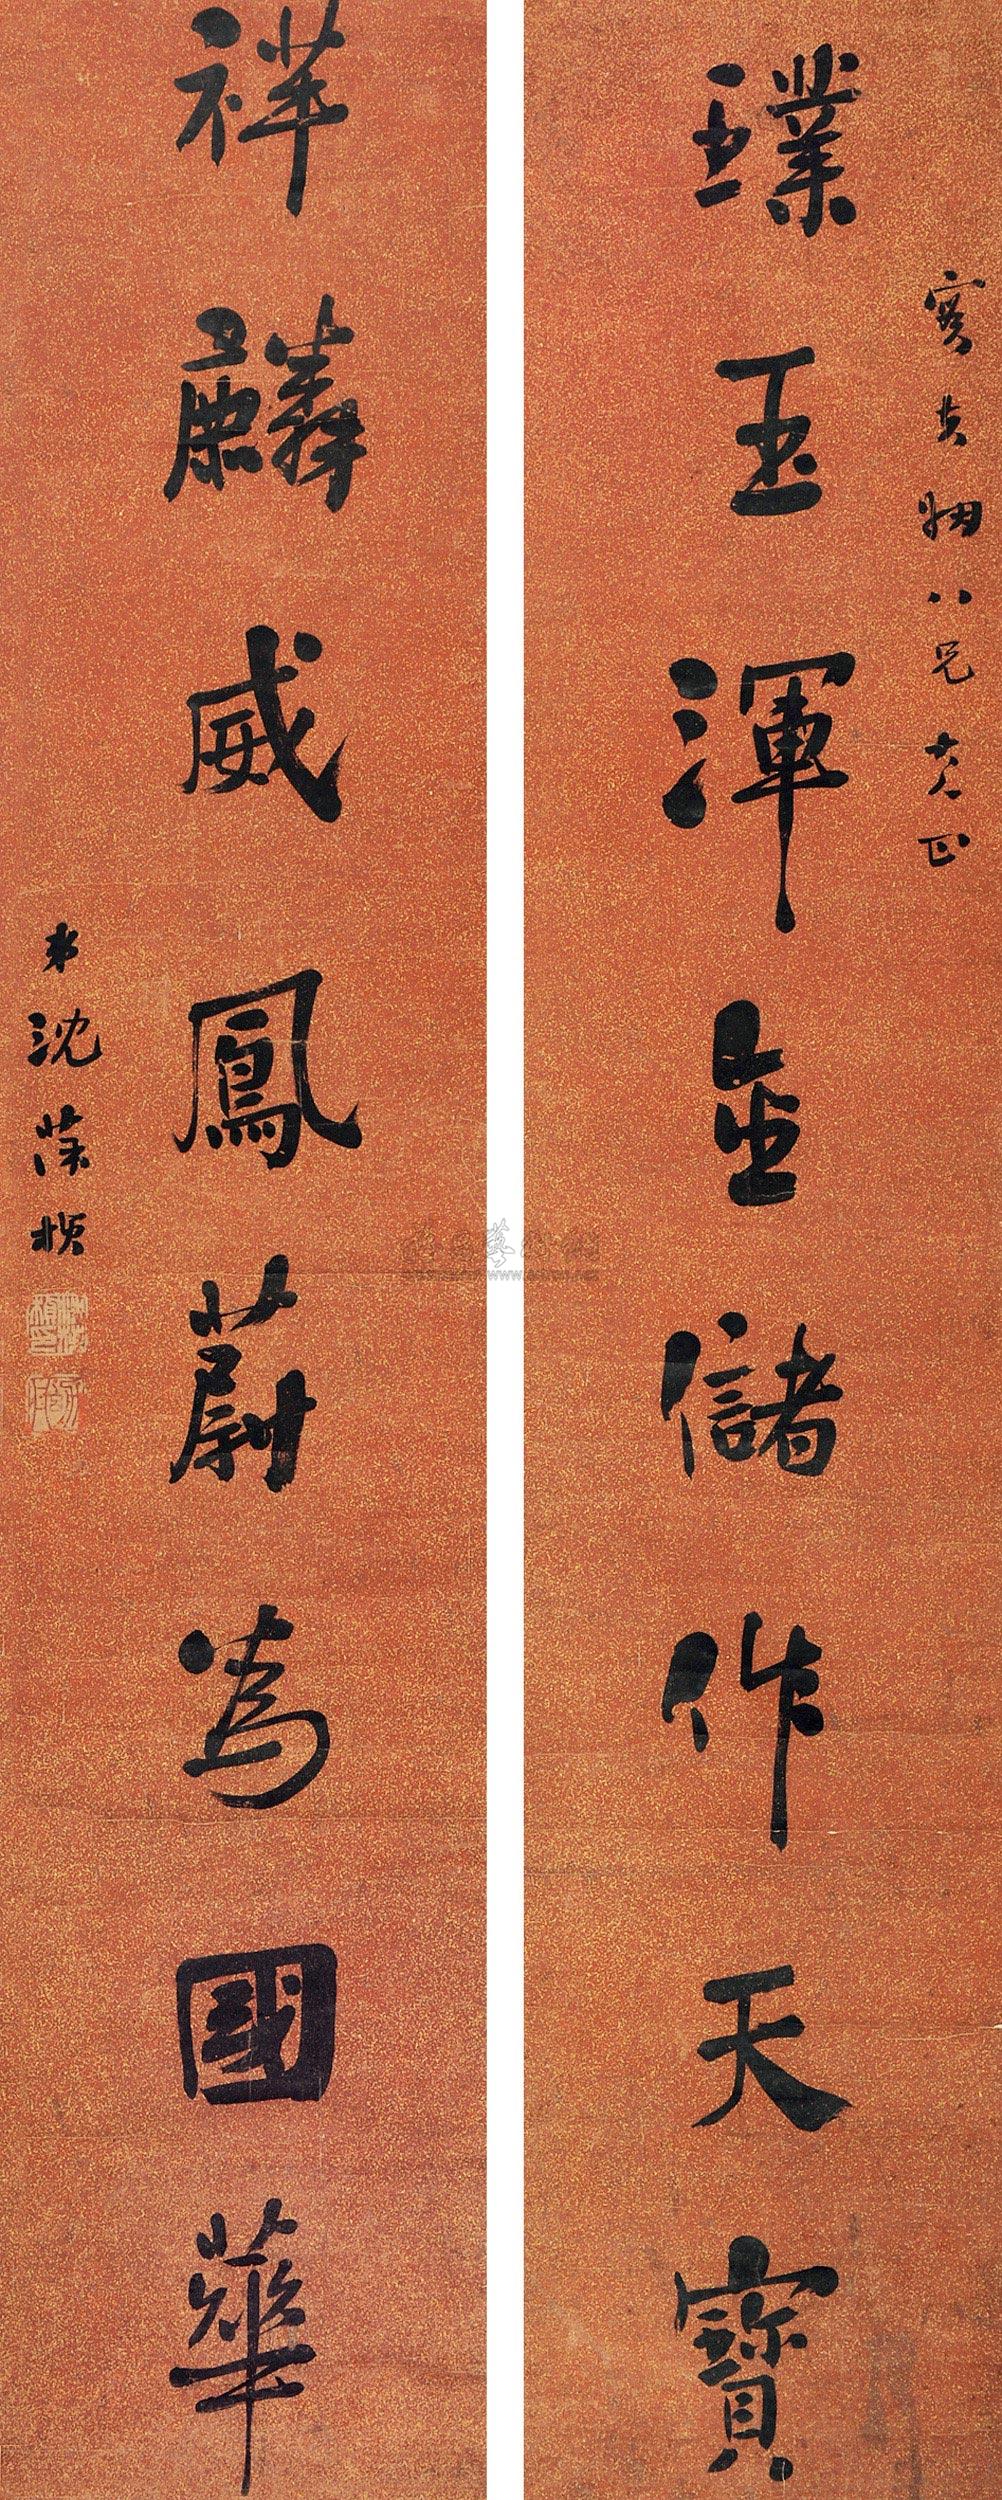 寅士妹八兄大人正
璞玉渾金儲作天寶
祥麟威鳳蔚為國華
弟沈葆楨